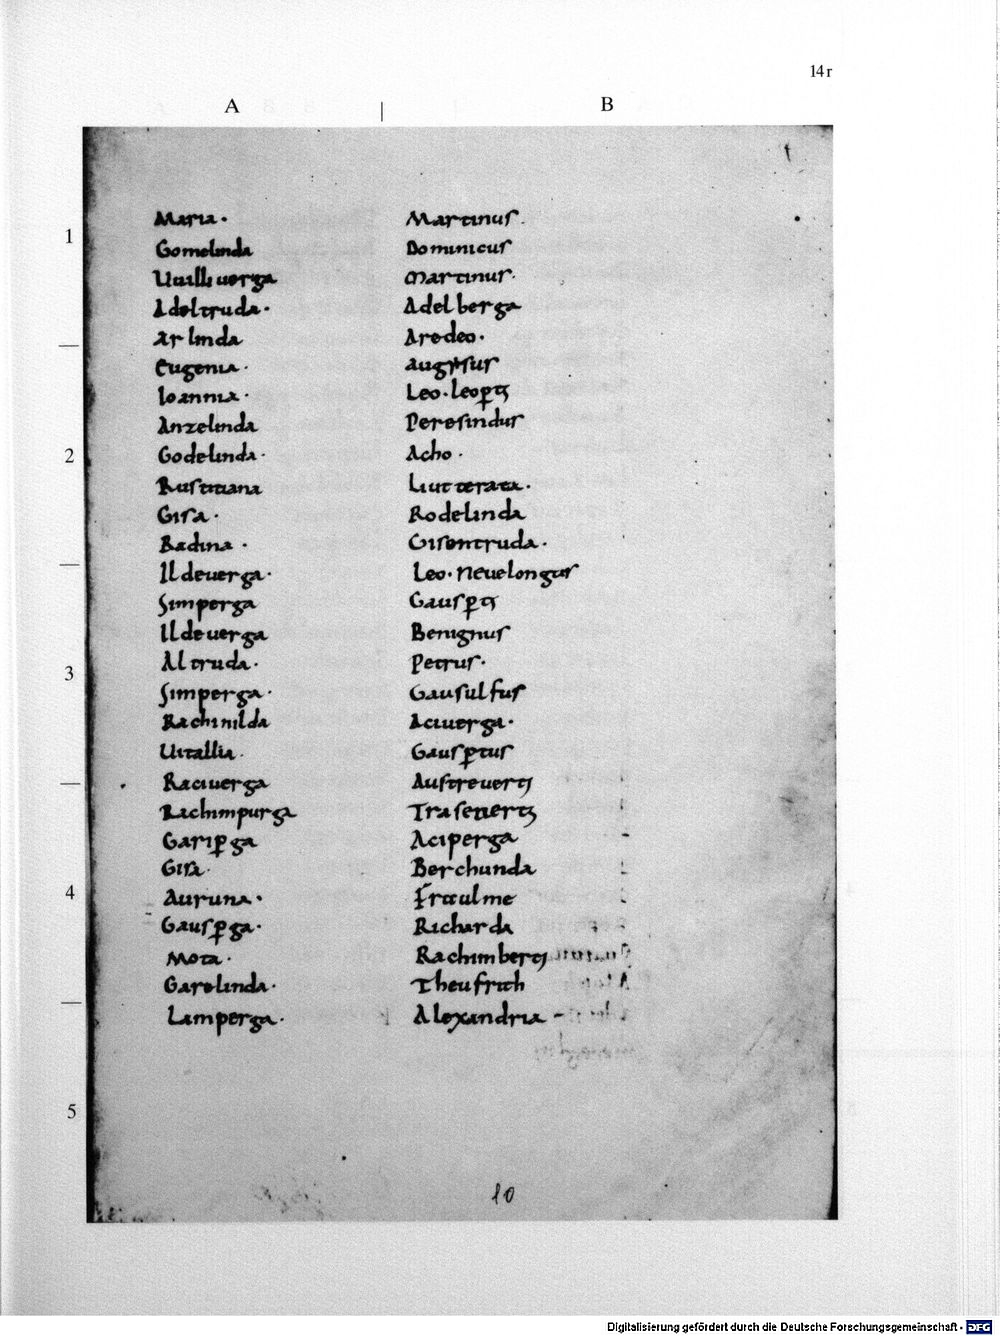 14r
A | B
1
Maria·
Gomelinda
Uuilliuerga
Adeltruda·
Arlinda
Eugenia·
Ioannia·
Anzelinda
2
Godelinda·
Rustitiana
Gisa·
Radina·
Ildeuerga·
Simperga
Ildeuerga
3
Altruda·
Simperga·
Rachinilda
Uitallia·
Raciuerga
Rachimpurga
Garip̱ga
Gisa·
4
Auruna·
Gausp̱ga·
Mota·
Garelinda·
Lamperga·
5
Martinus·
Dominicus
Martinus·
Adelberga
Aredeo·
Leo·leop̱tꝫ
Peresindus
Acho·
Liutterata·
Rodelinda
Gisentruda·
Leo·neuelongus
Gausp̱tꝫ
Benignus
Petrus·
Gausulfus
Aciuerga·
Gausp̱tus
Austreuertꝫ
Aciperga
Berchunda
Richarda
Rachimbertꝫ
Theufrith
Alexandria
10
Digitalisierung gefördert durch die Deutsche Forschungsgemeinschaft - DFG